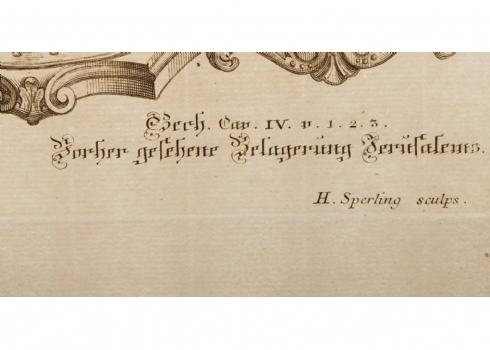 Ezech. Cap. IV. v. 1. 2. 3.
Vorher gesehene Belagerung Jerusalems.
H. Sperling sculps.